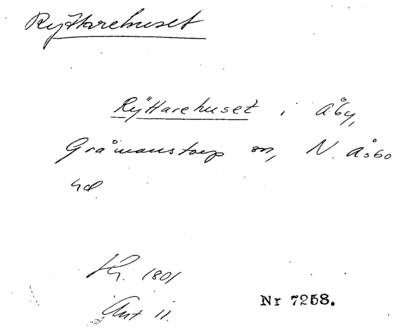 Ryttarehuset
Ryttarehuset i Åby,
Gråmanstorp sn, N. Åsbo
hd
Kr. 1801
Ant 11.
Nr 7258.